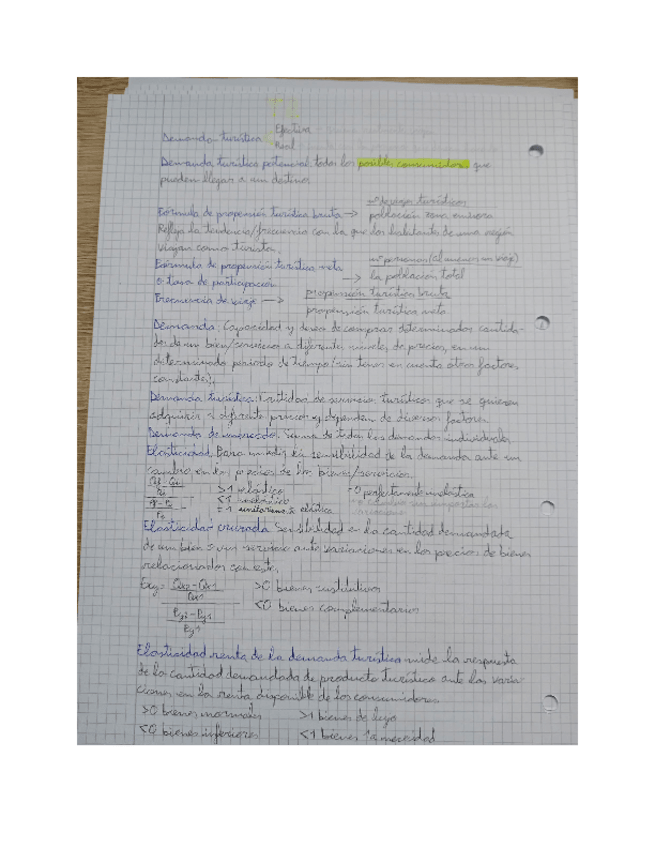 Demanda turística Efectiva
Real
Demanda turística potencial: todos los posibles consumidores que
pueden llegar a un destino.
nº viajes turísticos
Fórmula de propensión turística bruta → población zona emisora
Refleja la tendencia/frecuencia con la que los habitantes de una región
viajan como turista.
Fórmula de propensión turística neta nº personas (al menos un viaje)
o tasa de participación → la población total
Frecuencia de viaje → propensión turística bruta
propensión turística neta
Demanda: Capacidad y deseo de comprar determinadas cantida-
des de un bien/servicio a diferentes niveles de precios, en un
determinado periodo de tiempo (sin tener en cuenta otros factores
constantes).
Demanda turística: Cantidad de servicios turísticos que se quieren
adquirir a diferente precio y dependen de diversos factores
Demanda de mercado: Suma de todas las demandas individuales
Elasticidad: Para medir la sensibilidad de la demanda ante un
cambio en los precios de los bienes/servicios.
>1 elástica =0 perfectamente inelástica
<1 inelástica
=1 unitaria elástica
Elasticidad cruzada: Sensibilidad en la cantidad demandada
de un bien o un servicio ante variaciones en los precios de bienes
relacionados con este.
Exy= Qx2-Qx1 >0 bienes sustitutivos
Qx1
<0 bienes complementarios
Py2-Py1
Py1
Elasticidad renta de la demanda turística: mide la respuesta
de la cantidad demandada de producto turístico ante las varia-
ciones en la renta disponible de los consumidores
>0 bienes normales >1 bienes de lujo
<0 bienes inferiores <1 bienes 1ª necesidad